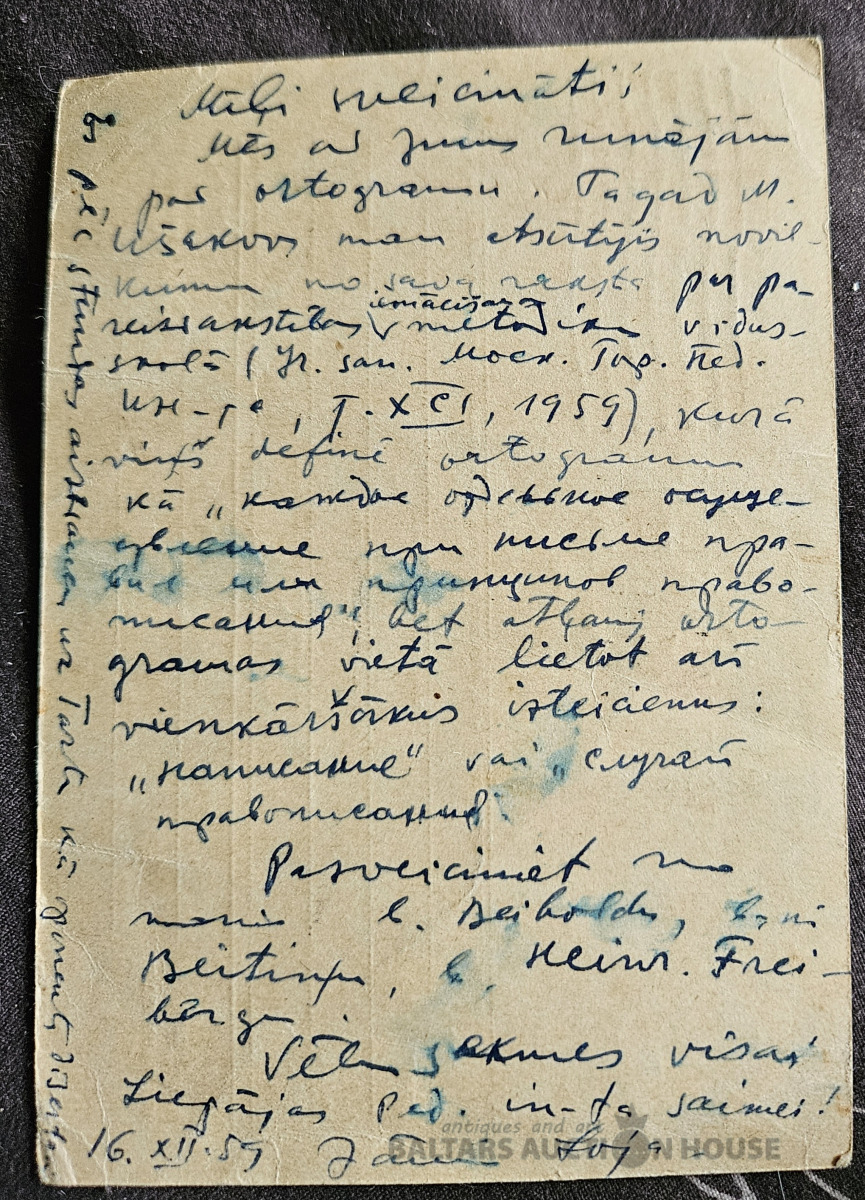 Mīļi sveicināti!
Mēs ar Jums runājām
par ortogramu. Tagad M.
Ušakovs man atsūtījis novil-
kumu no sava raksta par pa-
reizrakstības iemācīšanas metodiku vidus-
skolā (Уч. зап. Моск. Гор. Пед.
ин-та, т. XCI, 1959), kurā
viņš definē ortogrammu
kā „каждое отдельное осуще-
ствление при письме пра-
вил или принципов право-
писания", bet atļauj orto-
gramas vietā lietot arī
vienkāršākus izteicienus:
„написание" vai „случай
правописания".
Pasveiciniet no
manis b. Beiholdu, b-ni
Beitiņu, b. Heinr. Frei-
bergu.
Vēlu sekmes visai
Liepājas Ped. in-ta saimei!
16. XII. 59 Jānis Loja
Es pēc stundas aizbraucu uz Tartu kā oponents
antiques and art
BALTARS AUCTION HOUSE